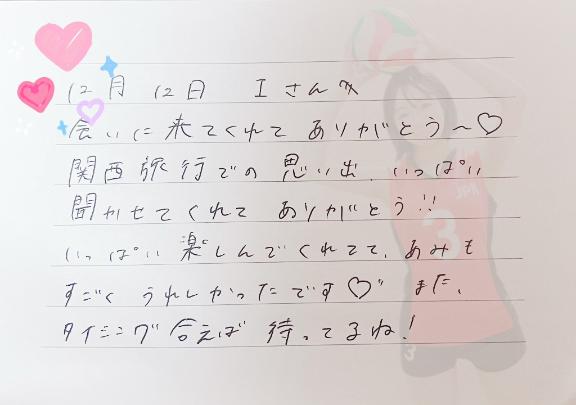 12月 12日 Iさんへ
会いに来てくれて ありがとう〜♡
関西旅行での思い出、いっぱい
聞かせてくれて ありがとう!!
いっぱい楽しんでくれてて、あみも
すごく うれしかったです♡ また、
タイミング合えば 待ってるね!
JPN
3